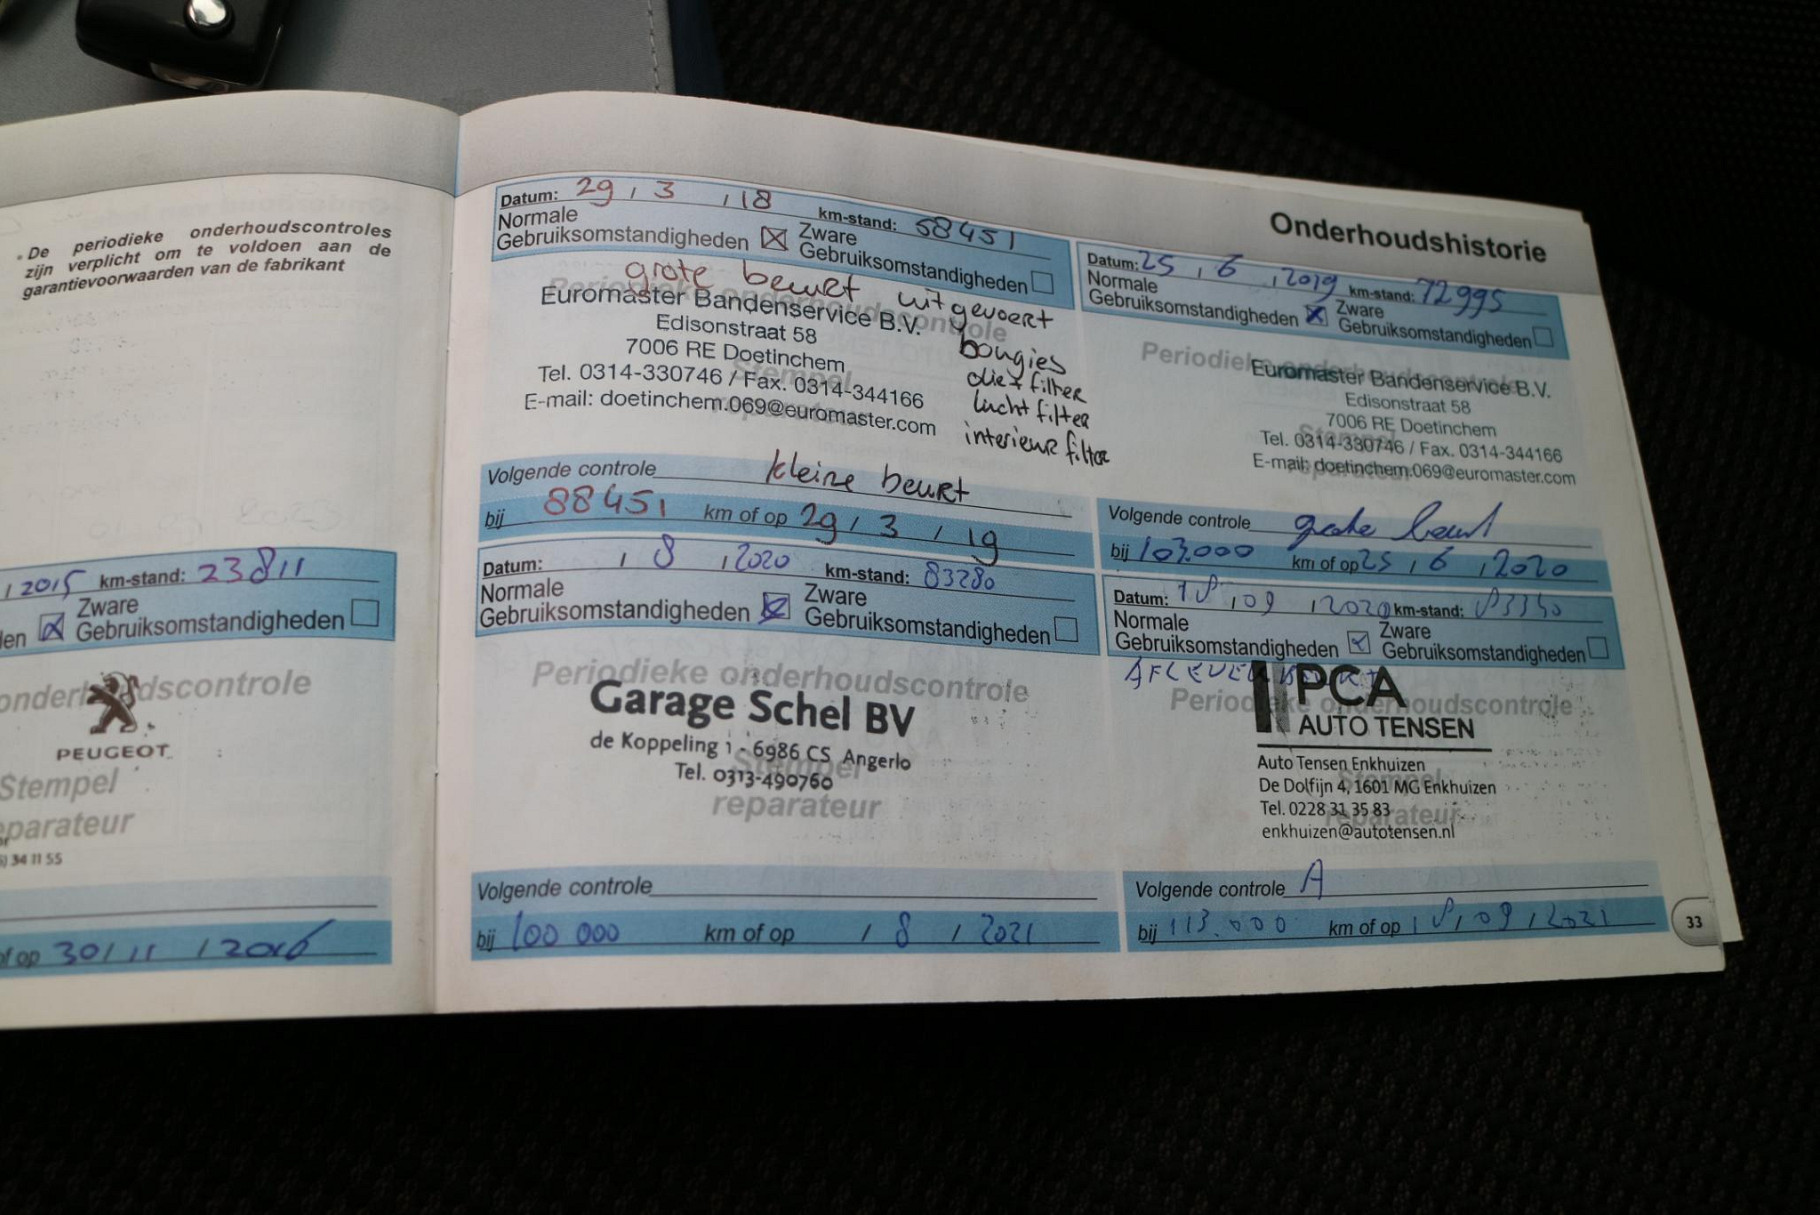 • De periodieke onderhoudscontroles
zijn verplicht om te voldoen aan de
garantievoorwaarden van de fabrikant
/ 2015 km-stand: 23811
en ☒ Zware
Gebruiksomstandigheden ☐
onderhoudscontrole
PEUGEOT
Stempel
eparateur
34 11 55
of op 30 / 11 / 2016
Onderhoudshistorie
Datum: 29 / 3 / 18 km-stand: 58451
Normale
Gebruiksomstandigheden ☒ Zware
Gebruiksomstandigheden ☐
grote beurt uitgevoert
Periodieke onderhoudscontrole
Euromaster Bandenservice B.V.
Edisonstraat 58
7006 RE Doetinchem
Tel. 0314-330746 / Fax. 0314-344166
E-mail: doetinchem.069@euromaster.com
Stempel
reparateur
bougies
olie + filter
lucht filter
interieur filter
Volgende controle kleine beurt
bij 88451 km of op 29 / 3 / 19
Datum: 25 / 6 / 2019 km-stand: 72995
Normale
Gebruiksomstandigheden ☒ Zware
Gebruiksomstandigheden ☐
Periodieke onderhoudscontrole
Euromaster Bandenservice B.V.
Edisonstraat 58
7006 RE Doetinchem
Tel. 0314-330746 / Fax. 0314-344166
E-mail: doetinchem.069@euromaster.com
Stempel
reparateur
Volgende controle grote beurt
bij 103.000 km of op 25 / 6 / 2020
Datum: / 8 / 2020 km-stand: 83280
Normale
Gebruiksomstandigheden ☒ Zware
Gebruiksomstandigheden ☐
Periodieke onderhoudscontrole
Garage Schel BV
de Koppeling 1 - 6986 CS Angerlo
Tel. 0313-490760
Stempel
reparateur
Volgende controle
bij 100 000 km of op / 8 / 2021
Datum: 18 / 09 / 2020 km-stand: 83350
Normale
Gebruiksomstandigheden ☒ Zware
Gebruiksomstandigheden ☐
Periodieke onderhoudscontrole
PCA
AUTO TENSEN
Auto Tensen Enkhuizen
De Dolfijn 4, 1601 MG Enkhuizen
Tel. 0228 31 35 83
enkhuizen@autotensen.nl
Stempel
reparateur
Volgende controle A
bij 113.000 km of op 18 / 09 / 2021
33